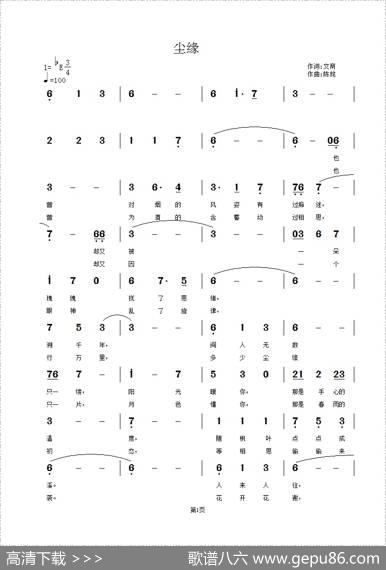 尘缘
1=♭E 3/4
♩=100
作词:艾荫
作曲:陈纯
6 1 3 | 6 - - | 6 i· 7 | 3 - - |
2 2 3 | 1 1 7 | 6 - - | 6 - 06 |
也
也
3 - - | 3 6· 4 | 3· 1 7 | 76 7 - |
曾 对 烟的 风 姿 有 过痴 迷,
曾 为 酒的 含 蓄 动 过相 思,
7 - 66 | 3 - - | 3 - - | 03 6 7 |
却又 被 一 朵
却又 因 一 个
i 7 0 | 6 7· 5 | 6 - - | 6 - - |
瑰 扰 了思 绪,
眼 神 乱 了旋 律,
7 5 3 | 3 - - | 6 1 3 | 6 1 3 |
千 年, 阅 人 无 数
行 万 里, 多 少 尘 缘
76 7 - | i - 7 | 3 2 0 | 21 2 23 |
只一 阳 光 暖 你, 那是 手 心的
只一 片, 月 色 懂 你, 那是 春 雨的
3 - - | 3 - - | 1 1 3 | 7 5 3 |
温 度, 随 枫 叶 点 点 成
初 恋, 等 相 思 偷 偷 来
6 - - | 6 - - | 6 1 3 | 6 - - |
人 来 人 往,
袭。 花 开 花 谢,
第1页
高清下载 >>>
歌谱八六 www.gepu86.com